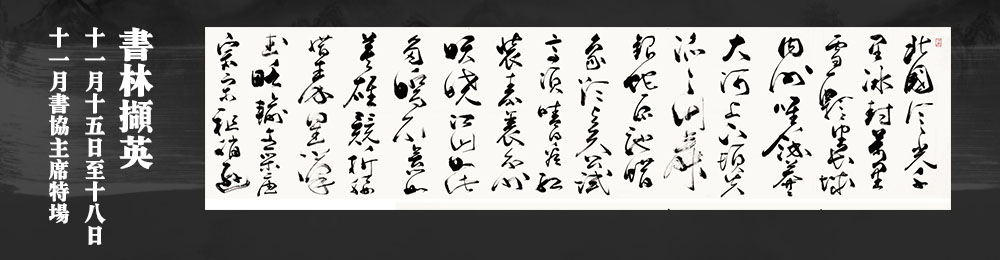 書林擷英
十一月十五日至十八日
十一月書協主席特場
北國風光千
里冰封萬里
雪飄望長城
内外唯餘莽
大河上下頓失
滔滔山舞
銀蛇原馳蠟
象欲與天公試
高須晴日看紅
裝素裹分外
妖嬈江山如此
多嬌引無數
英雄競折腰
惜秦皇漢武
略輸文采唐
宗宋祖稍遜